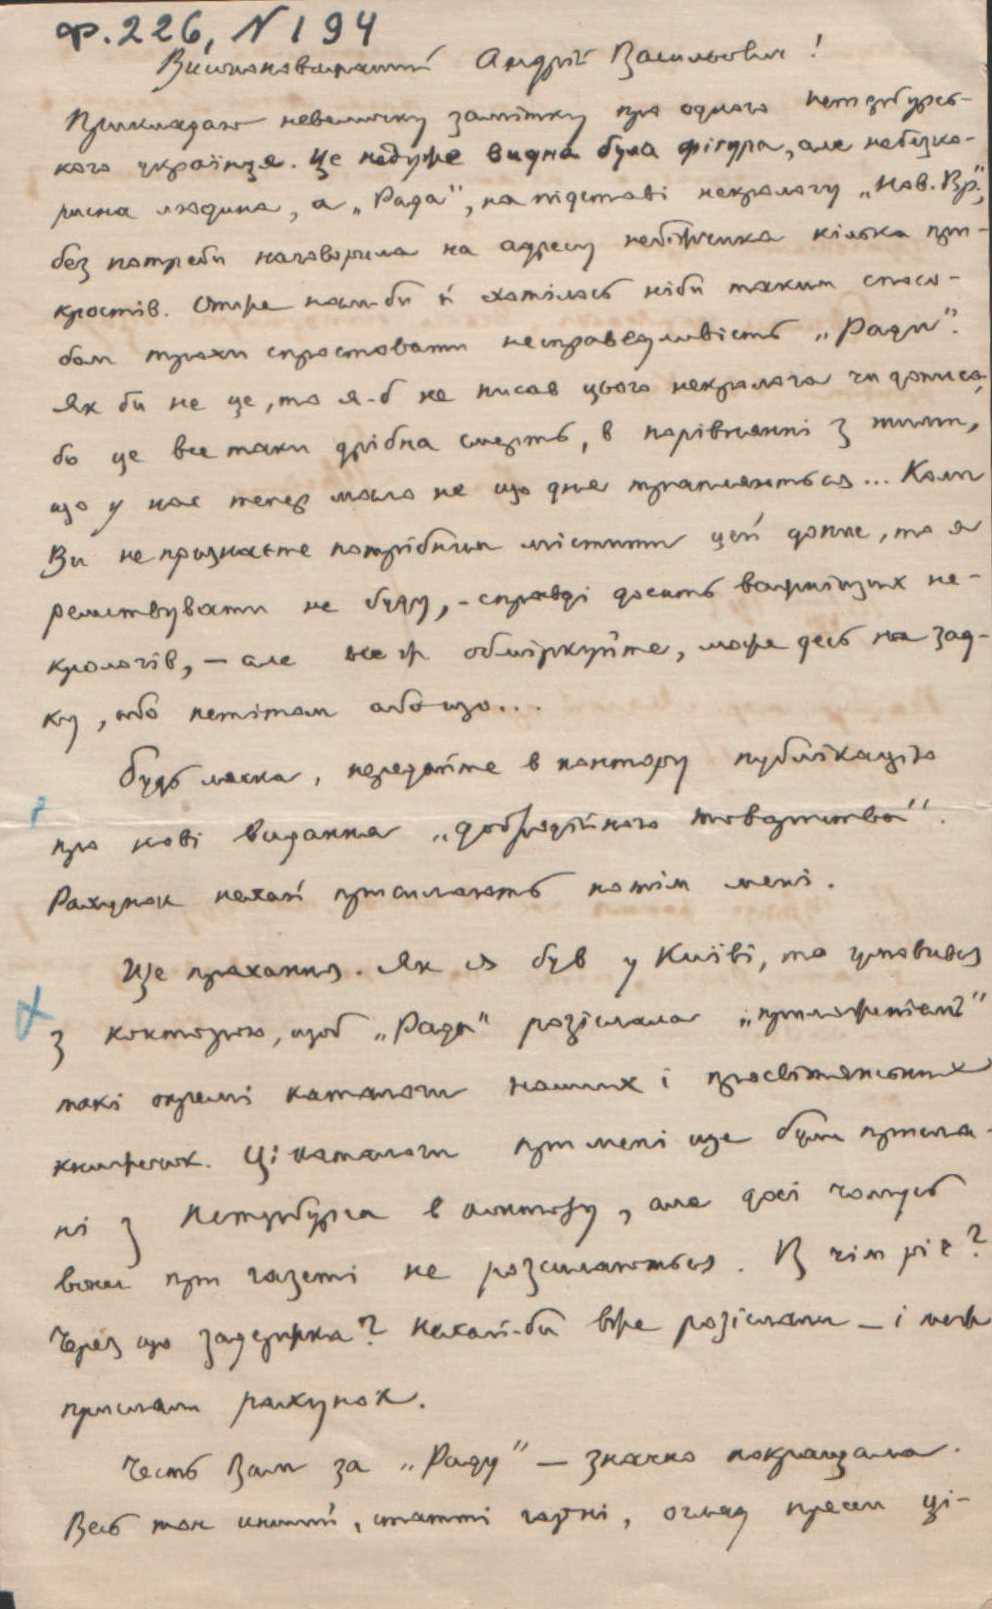 ф.226, N 194
Високоповажаний Андрій Васильович!
Прикладаю невеличку замітку про одного петербурсь-
кого українця. Це не дуже видна була фігура, але небезко-
рисна людина, а „Рада", на підставі некрологу „Нов. Вр.",
без потреби наговорила на адресу небіжчика кілька при-
кростів. Отже нам-би й хотілось ніби таким спосо-
бом трохи спростовати несправедливість „Ради".
Як би не це, то я-б не писав цього некролога чи допису,
бо це все таки дрібна смерть, в порівнянні з тими,
що у нас тепер мало не що дня трапляються... Коли
Ви не признаєте потрібним містити цей допис, то я
ремствувати не буду, - справді досить важніщих не-
крологів, — але все ж обміркуйте, може десь на зад-
ку, або петітом або що...
Будь ласка, передайте в контору публікацію
про нові видання „Добродійного товариства".
Рахунок нехай присилають потім мені.
Ще прохання. Як я був у Київі, то умовився
з конторою, щоб „Рада" розіслала „приложеніем"
такі окремі каталоги наших і просвітянських
книжечок. Ці каталоги при мені ще були присла-
ні з Петербурга в контору, але досі чомусь
вони при газеті не розсилаються. В чім річ?
Через що задержка? Нехай-би вже розіслали — і мені
прислали рахунок.
Честь Вам за „Раду" — значно покращала.
Весь тон инший, статті гарні, огляд преси ці-